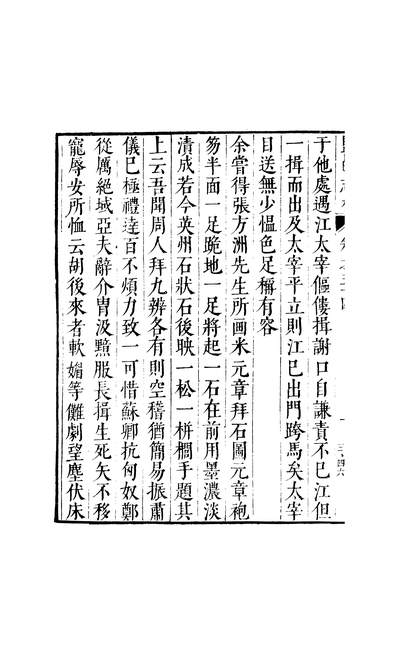 于他處遇江太宰傴僂揖謝口自謙責不已江但
一揖而出及太宰平立則江已出門跨馬矣太宰
目送無少慍色足稱有容
余嘗得張方洲先生所画米元章拜石圖元章袍
笏半面一足跪地一足將起一石在前用墨濃淡
漬成若今英州石狀石後映一松一栟櫚手題其
上云吾聞周人拜九辨各有則空稽猶簡易振肅
儀已極禮達百不煩力致一可惜蘇卿抗匈奴鄭
從厲絕域亞夫辭介胄汲黯服長揖生死矢不移
寵辱安所恤云胡後來者軟媚等儺劇望塵伏床